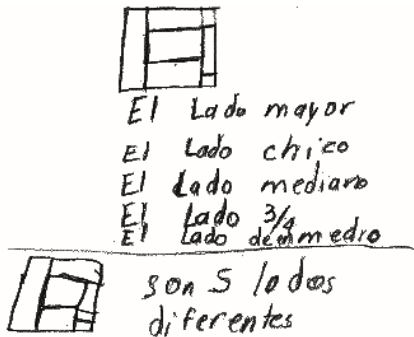 El Lado mayor
El Lado chico
El Lado mediano
El Lado 3/4
El Lado de enmedio
son 5 lados
diferentes